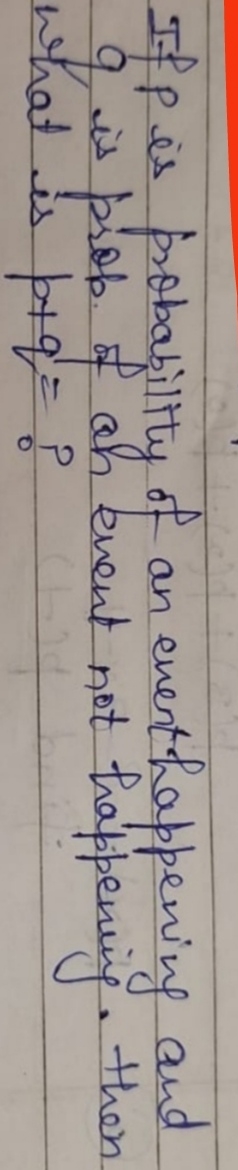 If p is probability of an event happening and
q is prob. of an event not happening. then
what is p+q = ?